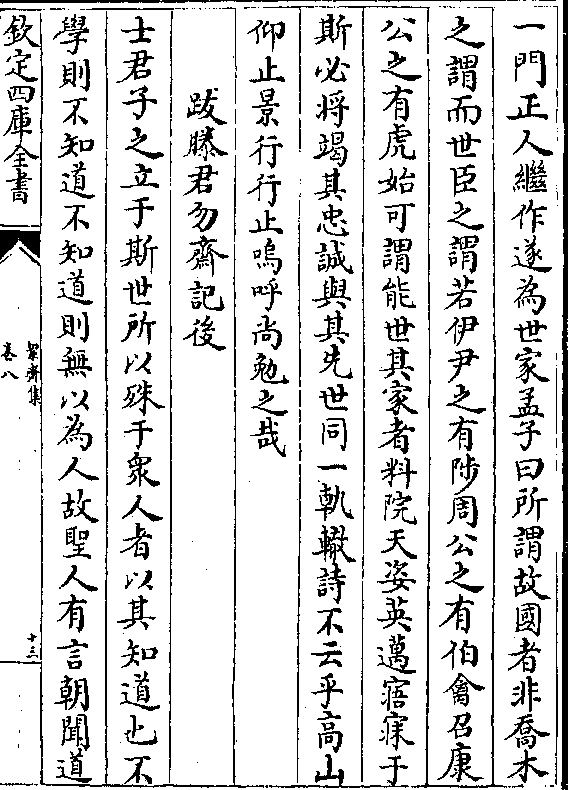 一門正人繼作遂為世家孟子曰所謂故國者非喬木
之謂而世臣之謂若伊尹之有陟周公之有伯禽召康
公之有虎始可謂能世其家者料院天姿英邁寤寐于
斯必将竭其忠誠與其先世同一軌轍詩不云乎高山
仰止景行行止嗚呼尚勉之哉
跋滕君勿齋記後
士君子之立于斯世所以殊于衆人者以其知道也不
學則不知道不知道則無以為人故聖人有言朝聞道
欽定四庫全書
絜齋集
卷八
十三